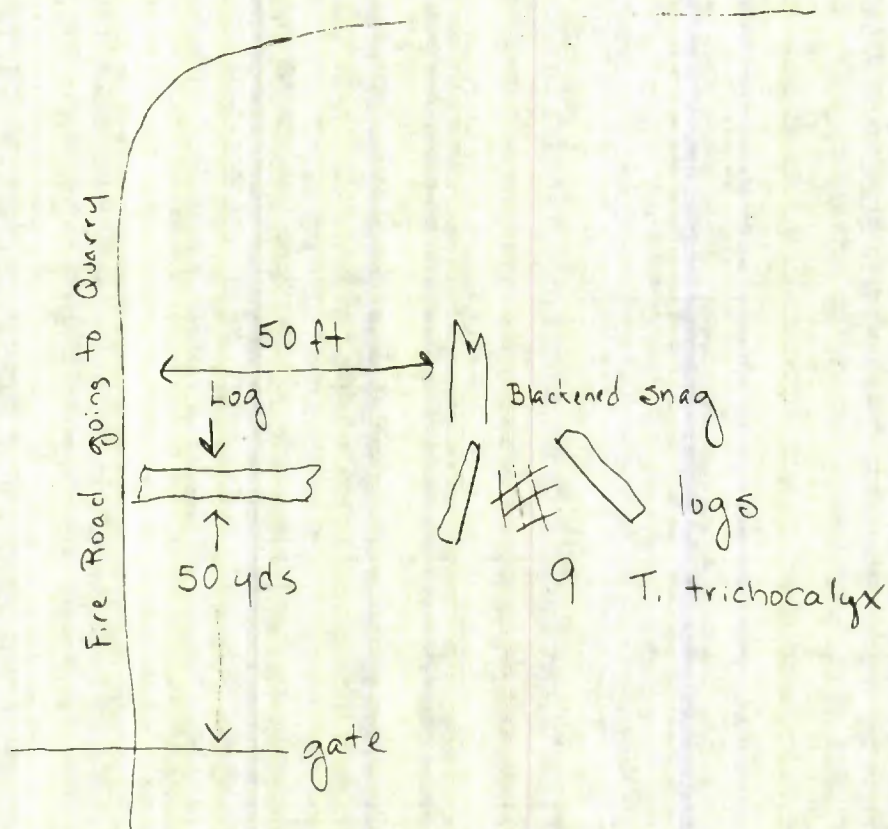 Fire Road going to Quarry
50 ft
Log
Blackened snag
logs
50 yds
9 T. trichocalyx
gate